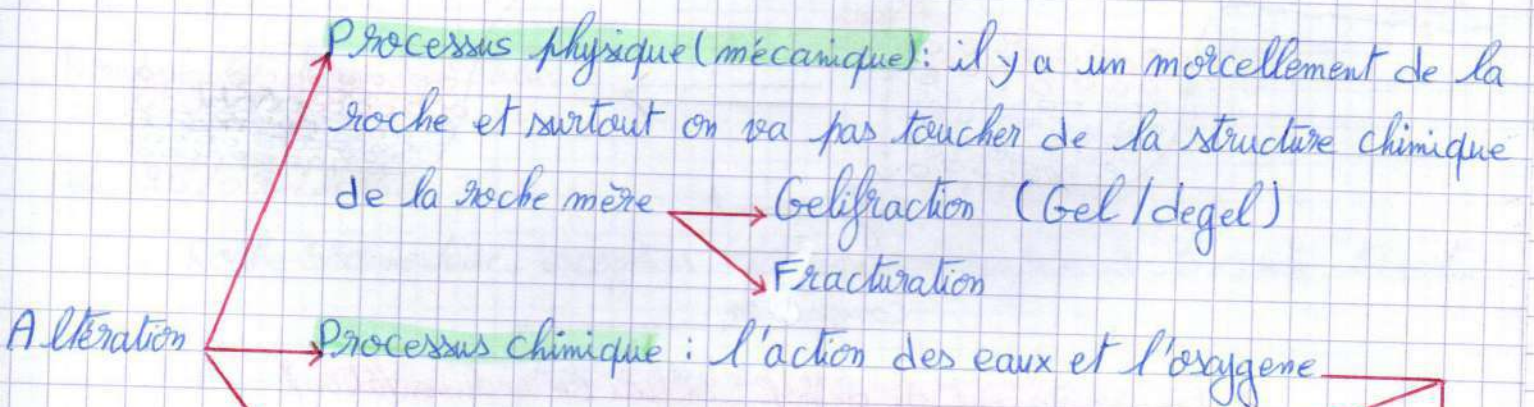 Processus physique (mécanique): il y a un morcellement de la
roche et surtout on va pas toucher de la structure chimique
de la roche mère → Gelifraction (Gel/degel)
Fracturation
Altération
Processus chimique : l'action des eaux et l'oxygene